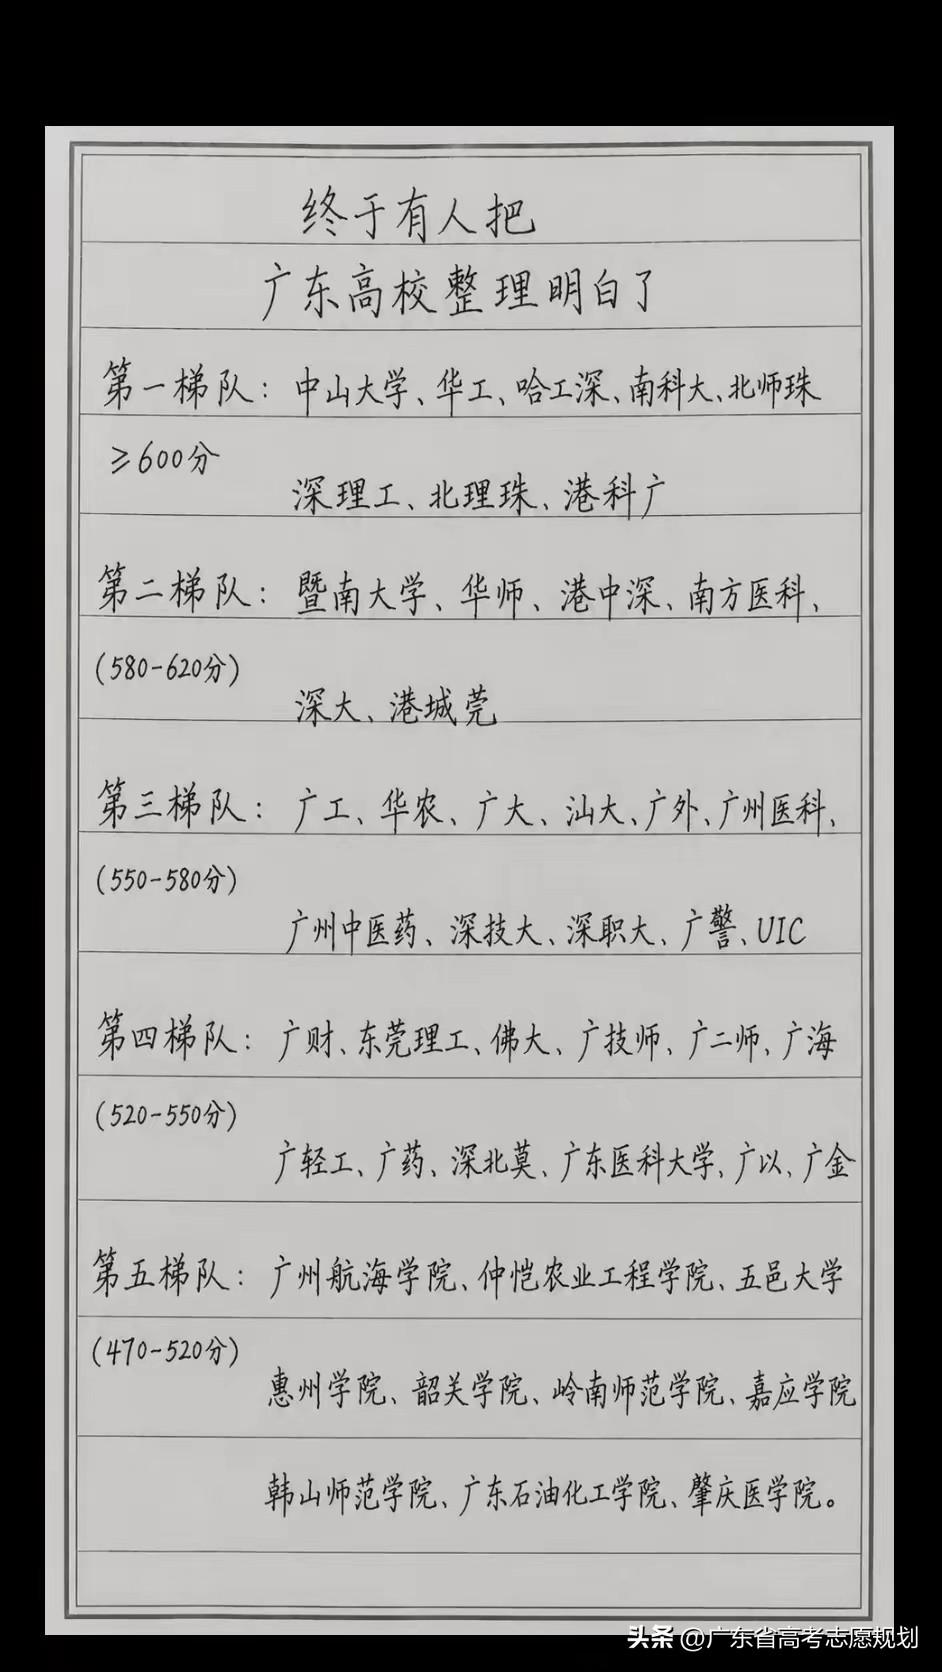 终于有人把
广东高校整理明白了
第一梯队：中山大学、华工、哈工深、南科大、北师珠
≥600分
深理工、北理珠、港科广
第二梯队：暨南大学、华师、港中深、南方医科、
(580-620分)
深大、港城莞
第三梯队：广工、华农、广大、汕大、广外、广州医科、
(550-580分)
广州中医药、深技大、深职大、广警、UIC
第四梯队：广财、东莞理工、佛大、广技师、广二师、广海
(520-550分)
广轻工、广药、深北莫、广东医科大学、广以、广金
第五梯队：广州航海学院、仲恺农业工程学院、五邑大学
(470-520分)
惠州学院、韶关学院、岭南师范学院、嘉应学院
韩山师范学院、广东石油化工学院、肇庆医学院。
头条 @广东省高考志愿规划